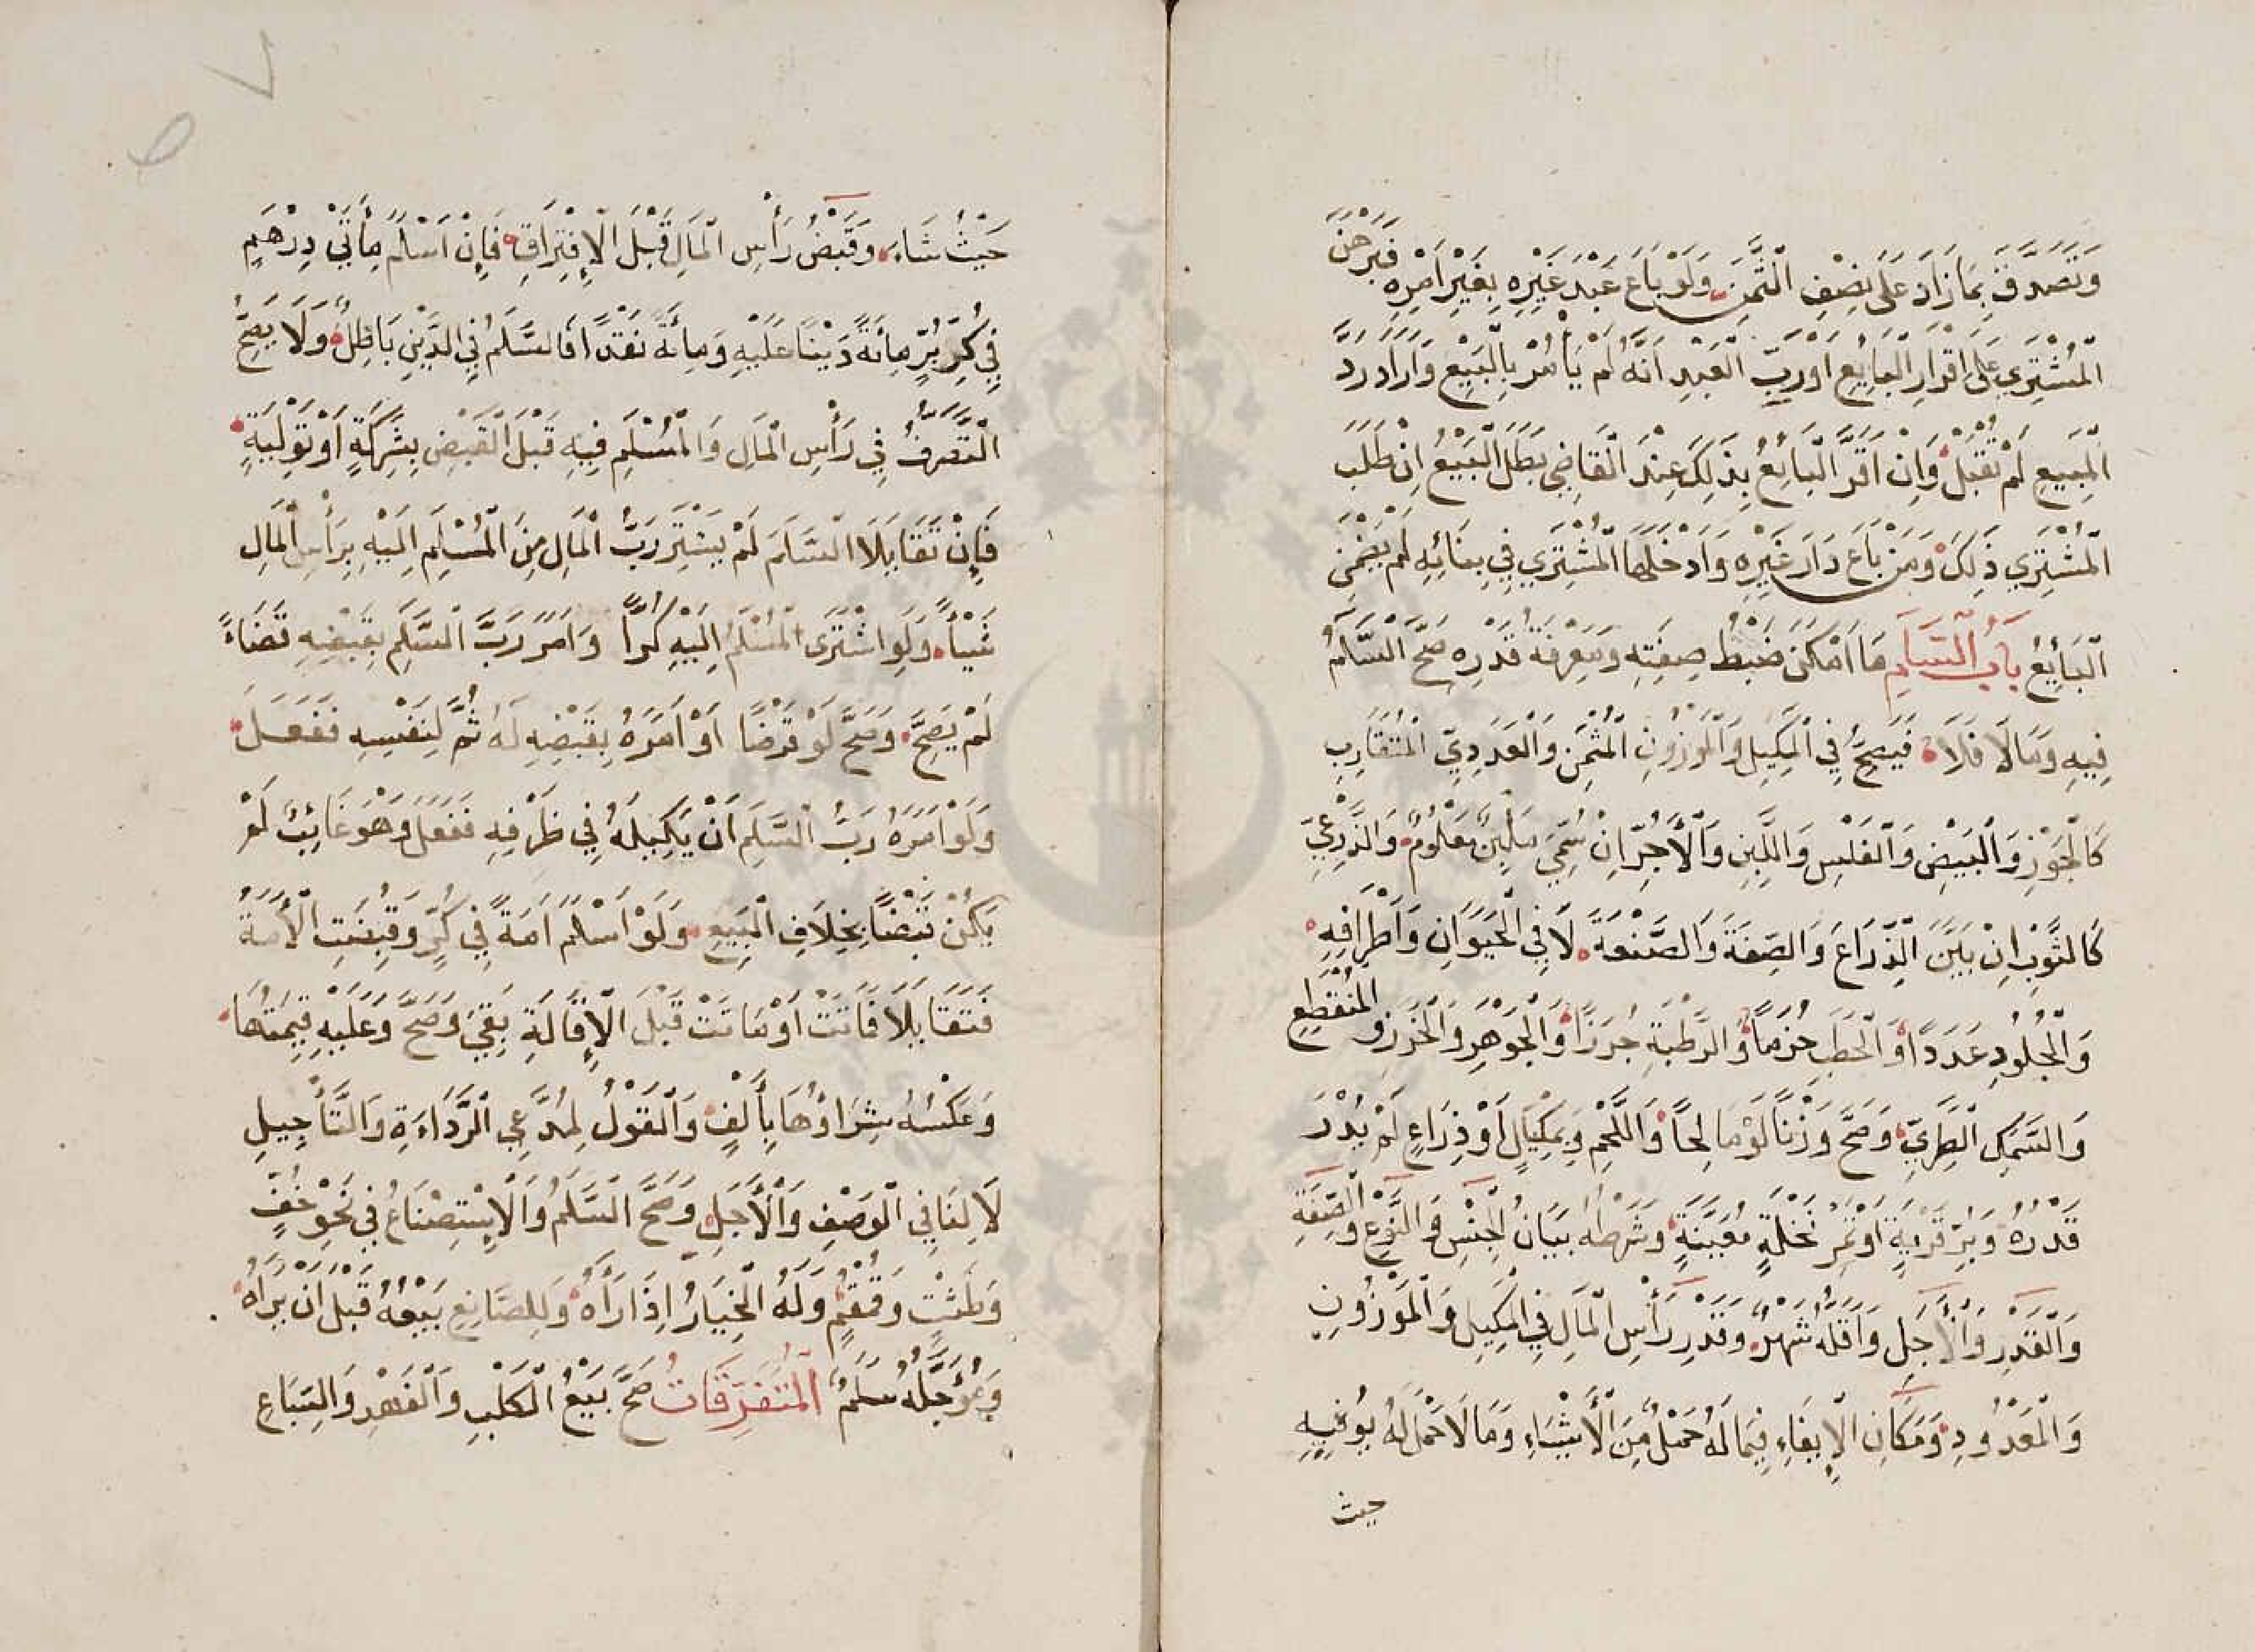 وَتَصَدَّقَ بِمَا زَادَ عَلَى نِصْفِ الثَّمَنِ وَلَوْ بَاعَ عَبْدَ غَيْرِهِ بِغَيْرِ اَمْرِهِ فَبَرْهَنَ
الْمُشْتَرِي عَلَى اِقْرَارِ الْبَايِعِ اَوْ رَبِّ الْعَبْدِ اَنَّهُ لَمْ يَأْمُرْ بِالْبَيْعِ وَاَرَادَ رَدَّ
الْمَبِيعِ لَمْ تُقْبَلْ وَاِنْ اَقَرَّ الْبَائِعُ بِذَلِكَ عِنْدَ الْقَاضِي بَطَلَ الْبَيْعُ اِنْ طَلَبَ
الْمُشْتَرِي ذَلِكَ وَمَنْ بَاعَ دَارَ غَيْرِهِ وَاَدْخَلَهَا الْمُشْتَرِي فِي بِنَائِهِ لَمْ يَضْمَنِ
الْبَائِعُ بَابُ السَّلَمِ مَا اَمْكَنَ ضَبْطُ صِفَتِهِ وَمَعْرِفَةُ قَدْرِهِ صَحَّ السَّلَمُ
فِيهِ وَمَا لَا فَلَا فَيَصِحُّ فِي الْمَكِيلِ وَالْمَوْزُونِ الْمُثْمَنِ وَالْعَدَدِيِّ الْمُتَقَارِبِ
كَالْجَوْزِ وَالْبَيْضِ وَالْفَلْسِ وَاللَّبِنِ وَالْأَجُرِّ اِنْ سُمِّيَ مَلْبِنٌ مَعْلُومٌ وَالذَّرْعِيِّ
كَالثَّوْبِ اِنْ بَيَّنَ الذِّرَاعَ وَالصِّفَةَ وَالصَّنْعَةَ لَا فِي الْحَيَوَانِ وَاَطْرَافِهِ
وَالْجُلُودِ عَدَدًا وَالْحَطَبِ حُزَمًا وَالرَّطْبَةِ جُرَزًا وَالْجَوْهَرِ وَالْخَرَزِ وَالْمُنْقَطِعِ
وَالسَّمَكِ الطَّرِيِّ وَصَحَّ وَزْنًا لَوْ مَالِحًا وَاللَّحْمِ وَبِمِكْيَالٍ اَوْ ذِرَاعٍ لَمْ يُدْرَ
قَدْرُهُ وَبُرِّ قَرْيَةٍ اَوْ تَمْرِ نَخْلَةٍ مُعَيَّنَةٍ وَشَرْطُهُ بَيَانُ الْجِنْسِ وَالنَّوْعِ وَالصِّفَةِ
وَالْقَدْرِ وَالْأَجَلِ وَاَقَلُّهُ شَهْرٌ وَقَدْرِ رَأْسِ الْمَالِ فِي الْمَكِيلِ وَالْمَوْزُونِ
وَالْمَعْدُودِ وَمَكَانِ الْإِيفَاءِ فِيمَا لَهُ حَمْلٌ مِنَ الْأَشْيَاءِ وَمَا لَا حَمْلَ لَهُ يُوفِيهِ
حيث
حَيْثُ شَاءَ وَقَبْضُ رَأْسِ الْمَالِ قَبْلَ الْإِفْتِرَاقِ فَإِنْ اَسْلَمَ مِأَتَيْ دِرْهَمٍ
فِي كُرِّ بُرٍّ مِائَةً دَيْنًا عَلَيْهِ وَمِائَةً نَقْدًا فَالسَّلَمُ فِي الدَّيْنِ بَاطِلٌ وَلَا يَصِحُّ
التَّصَرُّفُ فِي رَأْسِ الْمَالِ وَالْمُسْلَمِ فِيهِ قَبْلَ الْقَبْضِ بِشَرِكَةٍ اَوْ تَوْلِيَةٍ
فَإِنْ تَقَايَلَا السَّلَمَ لَمْ يَشْتَرِ رَبُّ الْمَالِ مِنَ الْمُسْلَمِ اِلَيْهِ بِرَأْسِ الْمَالِ
شَيْأً وَلَوِ اشْتَرَى الْمُسْلَمُ اِلَيْهِ كُرًّا وَاَمَرَ رَبَّ السَّلَمِ بِقَبْضِهِ قَضَاءً
لَمْ يَصِحَّ وَصَحَّ لَوْ قَرْضًا اَوْ اَمَرَهُ بِقَبْضِهِ لَهُ ثُمَّ لِنَفْسِهِ فَفَعَلَ
وَلَوْ اَمَرَهُ رَبُّ السَّلَمِ اَنْ يَكِيلَهُ فِي ظَرْفِهِ فَفَعَلَ وَهُوَ غَائِبٌ لَمْ
يَكُنْ قَبْضًا بِخِلَافِ الْمَبِيعِ وَلَوْ اَسْلَمَ اَمَةً فِي كُرٍّ وَقُبِضَتِ الْأَمَةُ
فَتَقَايَلَا فَمَاتَتْ اَوْ مَاتَتْ قَبْلَ الْإِقَالَةِ بَقِيَ وَصَحَّ وَعَلَيْهِ قِيمَتُهَا
وَعَكْسُهُ شِرَاؤُهَا بِأَلْفٍ وَالْقَوْلُ لِمُدَّعِي الرَّدَاءَةِ وَالتَّأْجِيلِ
لَا لِنَافِي الْوَصْفِ وَالْأَجَلِ وَصَحَّ السَّلَمُ وَالْإِسْتِصْنَاعُ فِي نَحْوِ خُفٍّ
وَطَشْتٍ وَقُمْقُمٍ وَلَهُ الْخِيَارُ اِذَا رَأَهُ وَلِلصَّانِعِ بَيْعُهُ قَبْلَ اَنْ يَرَاهُ
وَمُؤَجَّلُهُ سَلَمٌ الْمُتَفَرِّقَاتُ صَحَّ بَيْعُ الْكَلْبِ وَالْفَهْدِ وَالسِّبَاعِ